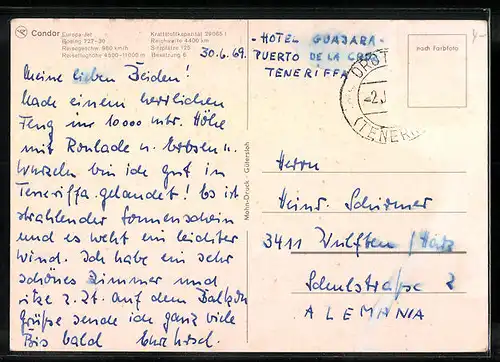 Condor
Europa Jet
Boeing 727-30
Reisegeschw. 960 km/h
Reiseflughöhe 4500-11000 m
Kraftstoffkapazität 29065 l
Reichweite 4400 km
Sitzplätze 125
Besatzung 6
30.6.69.
Meine lieben Beiden!
Nach einem herrlichen
Flug in 10000 mtr. Höhe
mit Roulade u. Erbsen u.
Wurzeln bin ich gut in
Teneriffa gelandet! Es ist
strahlender Sonnenschein
und es weht ein leichter
Wind. Ich habe ein sehr
schönes Zimmer und
sitze z. Zt. auf dem Balkon
Grüße sende ich ganz viele
Bis bald
Mohn-Druck · Gütersloh
- HOTEL GUAJARA -
PUERTO DE LA CRUZ
TENERIFFA
(TENERI
nach Farbfoto
Herrn
Heinr. Schirmer
3411 Wulften / Harz
Schulstraße 2
ALEMANIA